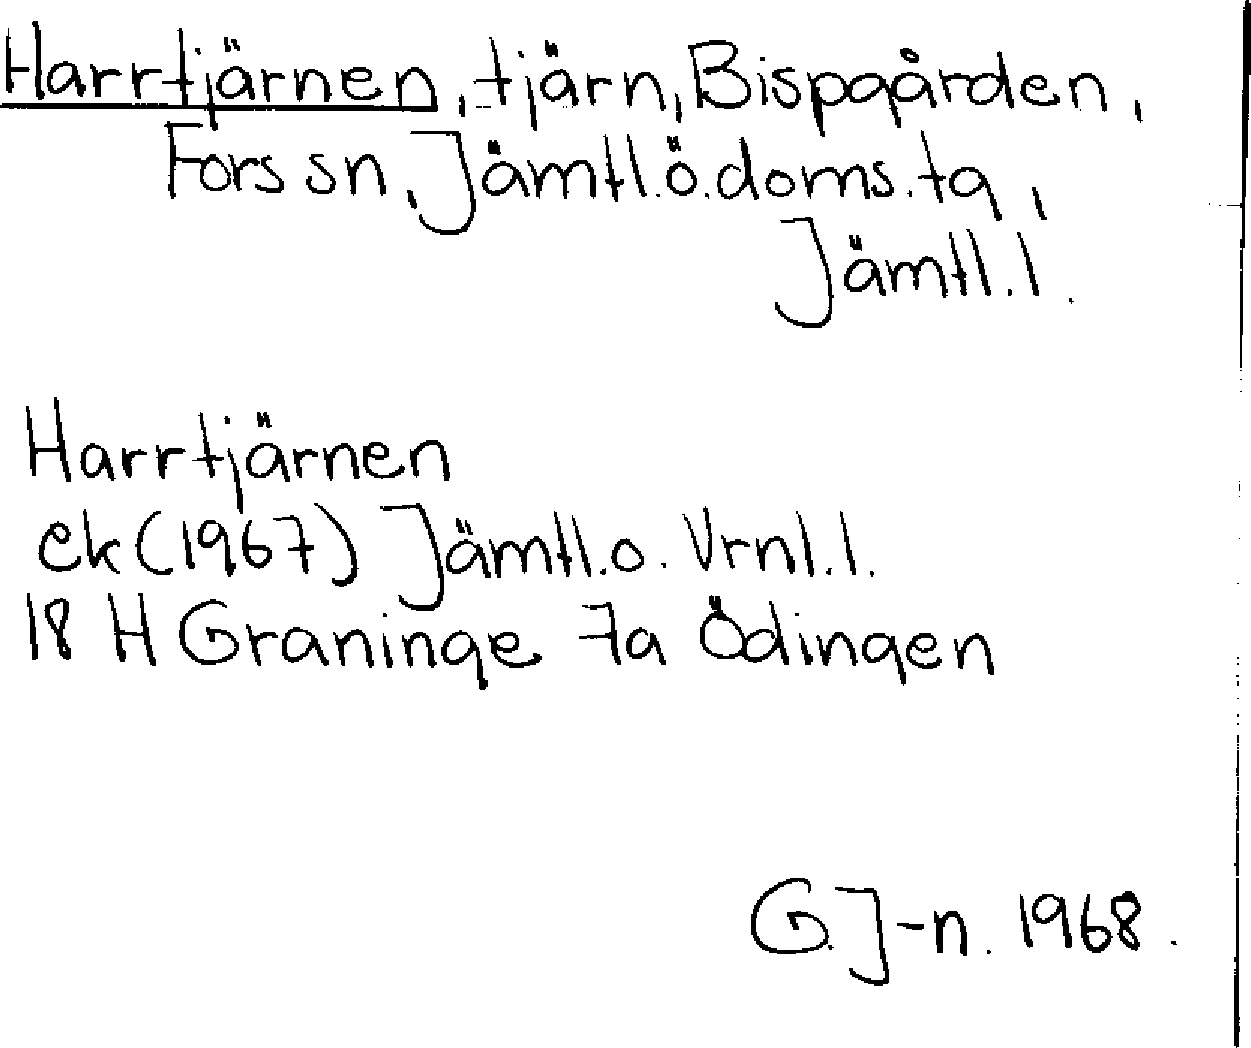 Harrtjärnen, tjärn, Bispgården,
Fors sn, Jämtl.ö.doms.tg,
Jämtl.l.
Harrtjärnen
ek (1967) Jämtl.o. Vrnl.l.
18 H Graninge 7a Ödingen
G.J-n. 1968.